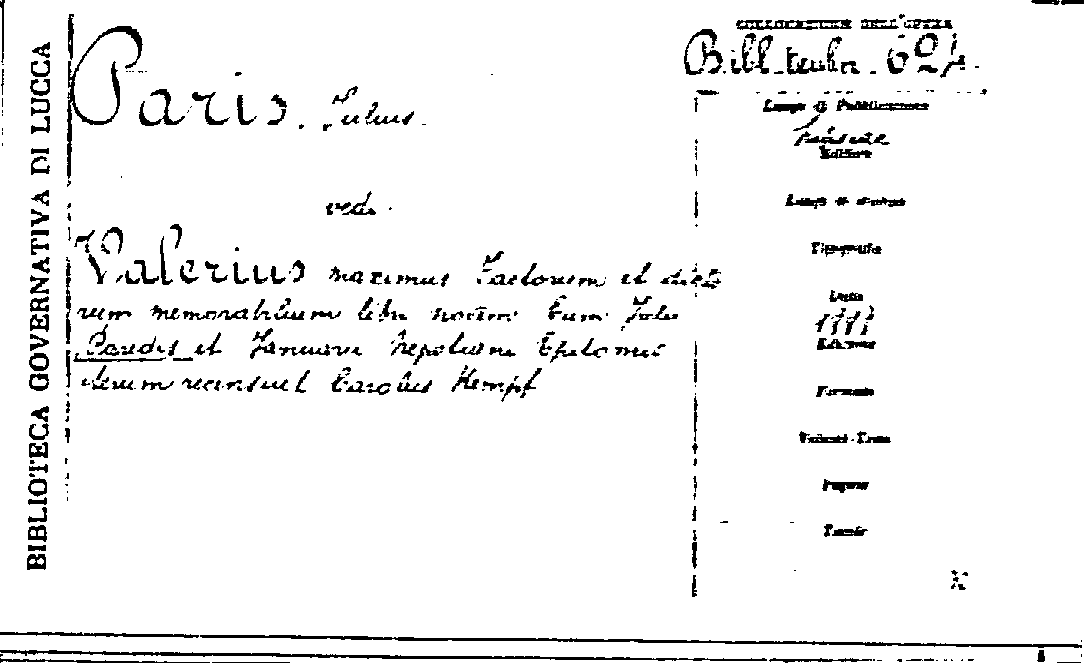 BIBLIOTECA GOVERNATIVA DI LUCCA
COLLOCAZIONE DELL'OPERA
Bibl. teubn. 624.
Paris. Julius.
vedi.
Valerius maximus Factorum et dicto
rum memorabilium libri novem Cum Julii
Paridis et Januarii Nepotiani Epitomis
iterum recensuit Carolus Kempf
Luogo di Pubblicazione
Lipsiae
Editore
Luogo di stampa
Tipografia
Data
Edizione
Formato
Volumi-Tomo
Pagine
X